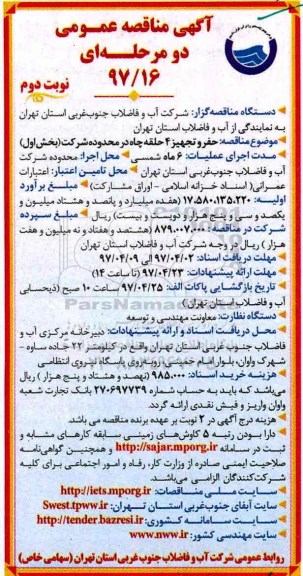 آگهی مناقصه عمومی
دو مرحله‌ای
۹۷/۱۶
نوبت دوم
دستگاه مناقصه‌گزار: شرکت آب و فاضلاب جنوب‌غربی استان تهران
به نمایندگی از آب و فاضلاب استان تهران
موضوع مناقصه: حفر و تجهیز ۴ حلقه چاه در محدوده شرکت (بخش اول)
مدت اجرای عملیات: ۶ ماه شمسی محل اجرا: محدوده شرکت
آب و فاضلاب جنوب‌غربی استان تهران محل تامین اعتبار: اعتبارات
عمرانی( اسناد خزانه اسلامی - اوراق مشارکت) مبلغ برآورد
اولیه: ۱۷،۵۸۰،۱۳۵،۲۲۰ (هفده میلیارد و پانصد و هشتاد میلیون و
یکصد و سی و پنج هزار و دویست و بیست) ریال مبلغ سپرده
شرکت در مناقصه: ۸۷۹،۰۰۷،۰۰۰ (هشتصد و هفتاد و نه میلیون و هفت
هزار ) ریال در وجه شرکت آب و فاضلاب استان تهران
مهلت دریافت اسناد: ۹۷/۰۴/۰۲ الی ۹۷/۰۴/۰۹
مهلت ارائه پیشنهادات: ۹۷/۰۴/۲۳ (تا ساعت ۱۴)
تاریخ بازگشایی پاکات الف: ۹۷/۰۴/۲۵ ساعت ۱۰ صبح (ذیحسابی
آب و فاضلاب استان تهران)
دستگاه نظارت: معاونت مهندسی و توسعه
محل دریافت اسناد و ارائه پیشنهادات: دبیرخانه مرکزی آب و
فاضلاب جنوب غربی استان تهران واقع در کیلومتر ۲۲ جاده ساوه -
شهرک واوان، بلوار امام خمینی، روبه‌روی پاسگاه نیروی انتظامی
هزینه خرید اسناد: ۹۸۵،۰۰۰ (نهصد و هشتاد و پنج هزار ) ریال
می‌باشد که باید به حساب شماره ۲۷۰۶۹۷۷۳۹ بانک تجارت شعبه
واوان واریز و فیش نقدی ارائه گردد.
هزینه درج آگهی در ۲ نوبت بر عهده برنده مناقصه می باشد.
دارا بودن رتبه ۵ کاوش‌های زمینی سابقه کارهای مشابه و
ثبت در سامانه http://sajar.mporg.ir و همچنین گواهی‌نامه
صلاحیت ایمنی صادره از وزارت کار، رفاه و امور اجتماعی برای کلیه
شرکت‌کنندگان الزامی می‌باشد.
سایت ملی مناقصات: http://iets.mporg.ir
سایت آبفای جنوب‌غربی استان تهران: Swest.tpww.ir
سایت سامانه کشوری: http://tender.bazresi.ir
سایت مهندسی کشور: www.nww.ir
روابط عمومی شرکت آب و فاضلاب جنوب غربی استان تهران (سهامی خاص)